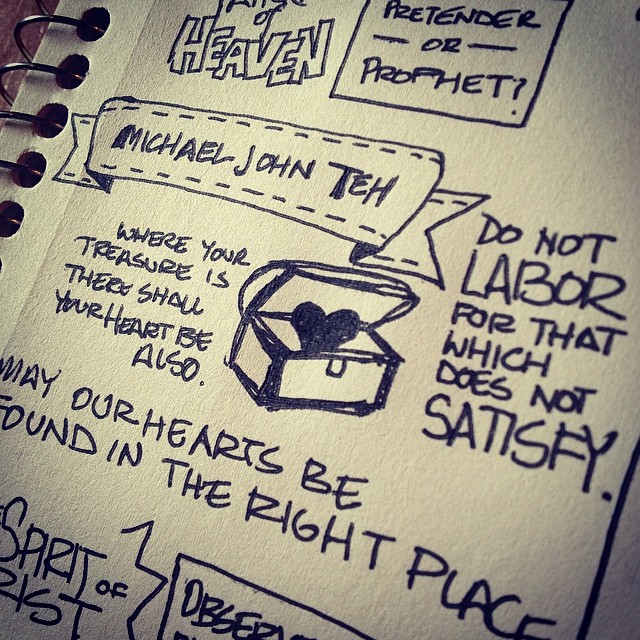 of
HEAVEN
PRETENDER
— OR —
PROFHET?
MICHAEL JOHN TEH
WHERE YOUR
TREASURE IS
THERE SHALL
YOUR HEART BE
ALSO.
DO NOT
LABOR
FOR THAT
WHICH
DOES NOT
SATISFY.
MAY OUR HEARTS BE
FOUND IN THE RIGHT PLACE
SPIRIT
OF